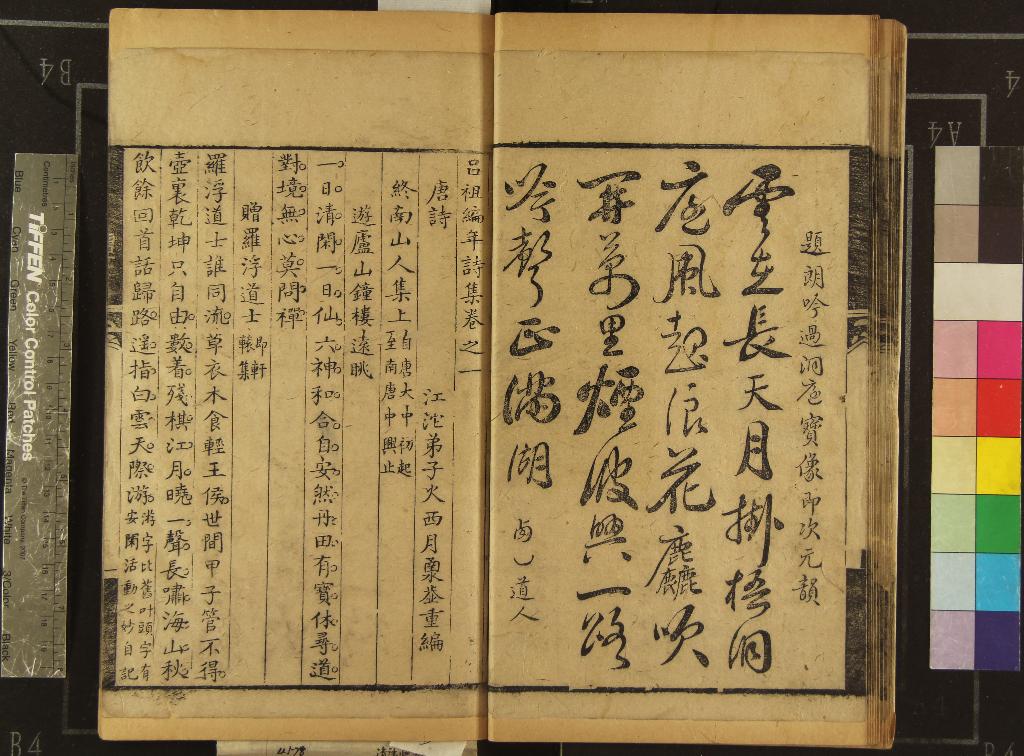 題朗吟過洞庭寶像即次元韻
雲在長天月掛梧洞
庭風起浪花麤吹
開萬里煙波興一路
吟聲正滿湖 卣乙道人
呂祖編年詩集卷之一
唐詩 江沱弟子火西月稟荃重編
終南山人集上 自唐大中初起至南唐中興止
遊廬山鐘樓遠眺
一日清閑一日仙六神和合自安然丹田有寶休尋道
對境無心莫問禪
贈羅浮道士 即軒轅集
羅浮道士誰同流草衣木食輕王侯世間甲子管不得
壺裏乾坤只自由數着殘棋江月曉一聲長嘯海山秋
飲餘回首話歸路遙指白雲天際游 游字比舊叶頭字有安閑活動之妙自記
B4
A4
4
TIFFEN Color Control Patches
Blue
Cyan
Green
Yellow
Red
Magenta
White
3/Color
Black
Centimetres
B4